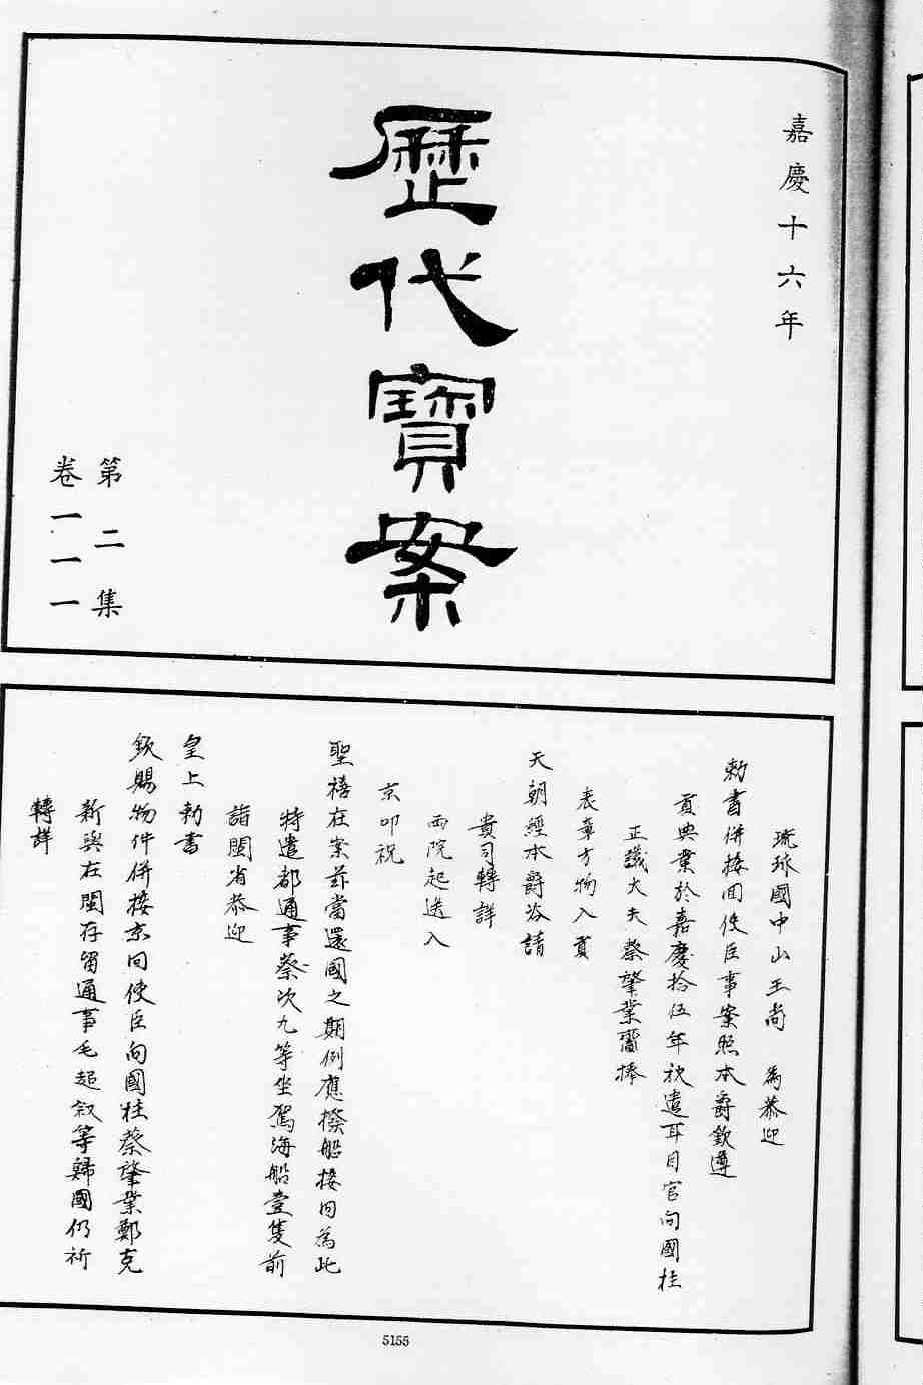 嘉慶十六年
歷代寶案
第二集
卷一一一
琉球國中山王尚 為恭迎
勅書併接回使臣事案照本爵欽遵
貢典業於嘉慶拾伍年秋遣耳目官向國柱
正議大夫蔡肇業齎捧
表章方物入貢
天朝經本爵咨請
貴司轉詳
兩院起送入
京叩祝
聖禧在案茲當還國之期例應撥船接回為此
特遣都通事蔡次九等坐駕海船壹隻前
詣閩省恭迎
皇上勅書
欽賜物件併接京回使臣向國柱蔡肇業鄭克
新與在閩存留通事毛超叙等歸國仍祈
轉詳
5155